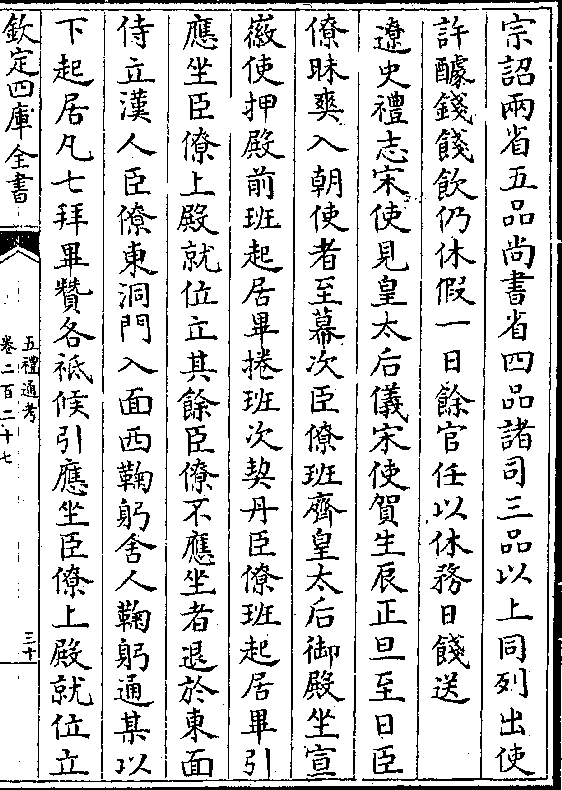 宗詔兩省五品尚書省四品諸司三品以上同列出使
許醵錢餞飲仍休假一日餘官任以休務日餞送
遼史禮志宋使見皇太后儀宋使賀生辰正旦至日臣
僚昧爽入朝使者至幕次臣僚班齊皇太后御殿坐宣
徽使押殿前班起居畢捲班次契丹臣僚班起居畢引
應坐臣僚上殿就位立其餘臣僚不應坐者退於東面
侍立漢人臣僚東洞門入面西鞠躬舍人鞠躬通某以
下起居凡七拜畢贊各祗候引應坐臣僚上殿就位立
欽定四庫全書
五禮通考
卷二百二十七
三十